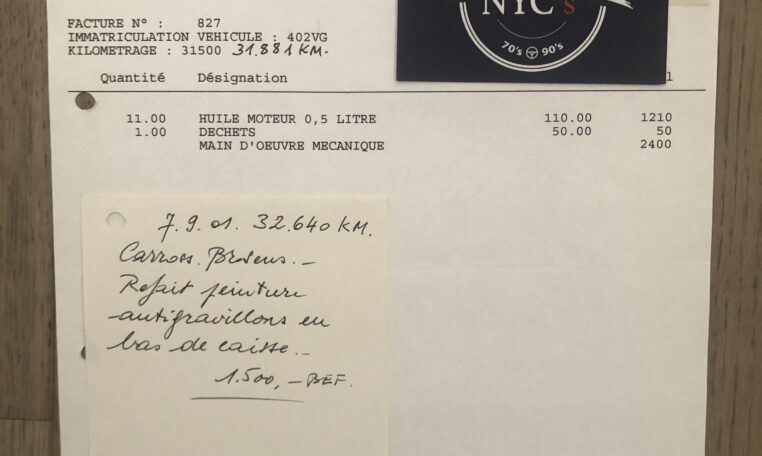 NYC's
70's 90's
FACTURE N° : 827
IMMATRICULATION VEHICULE : 402VG
KILOMETRAGE : 31500 31.881 KM.-
Quantité Désignation l
11.00 HUILE MOTEUR 0,5 LITRE 110.00 1210
1.00 DECHETS 50.00 50
MAIN D'OEUVRE MECANIQUE 2400
7.9.01. 32.640 KM.
Carross. Brosens.-
Refait peinture
antigravillons en
bas de caisse.-
1.500,- BEF.